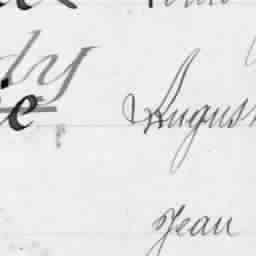 dy
ie August
Jean